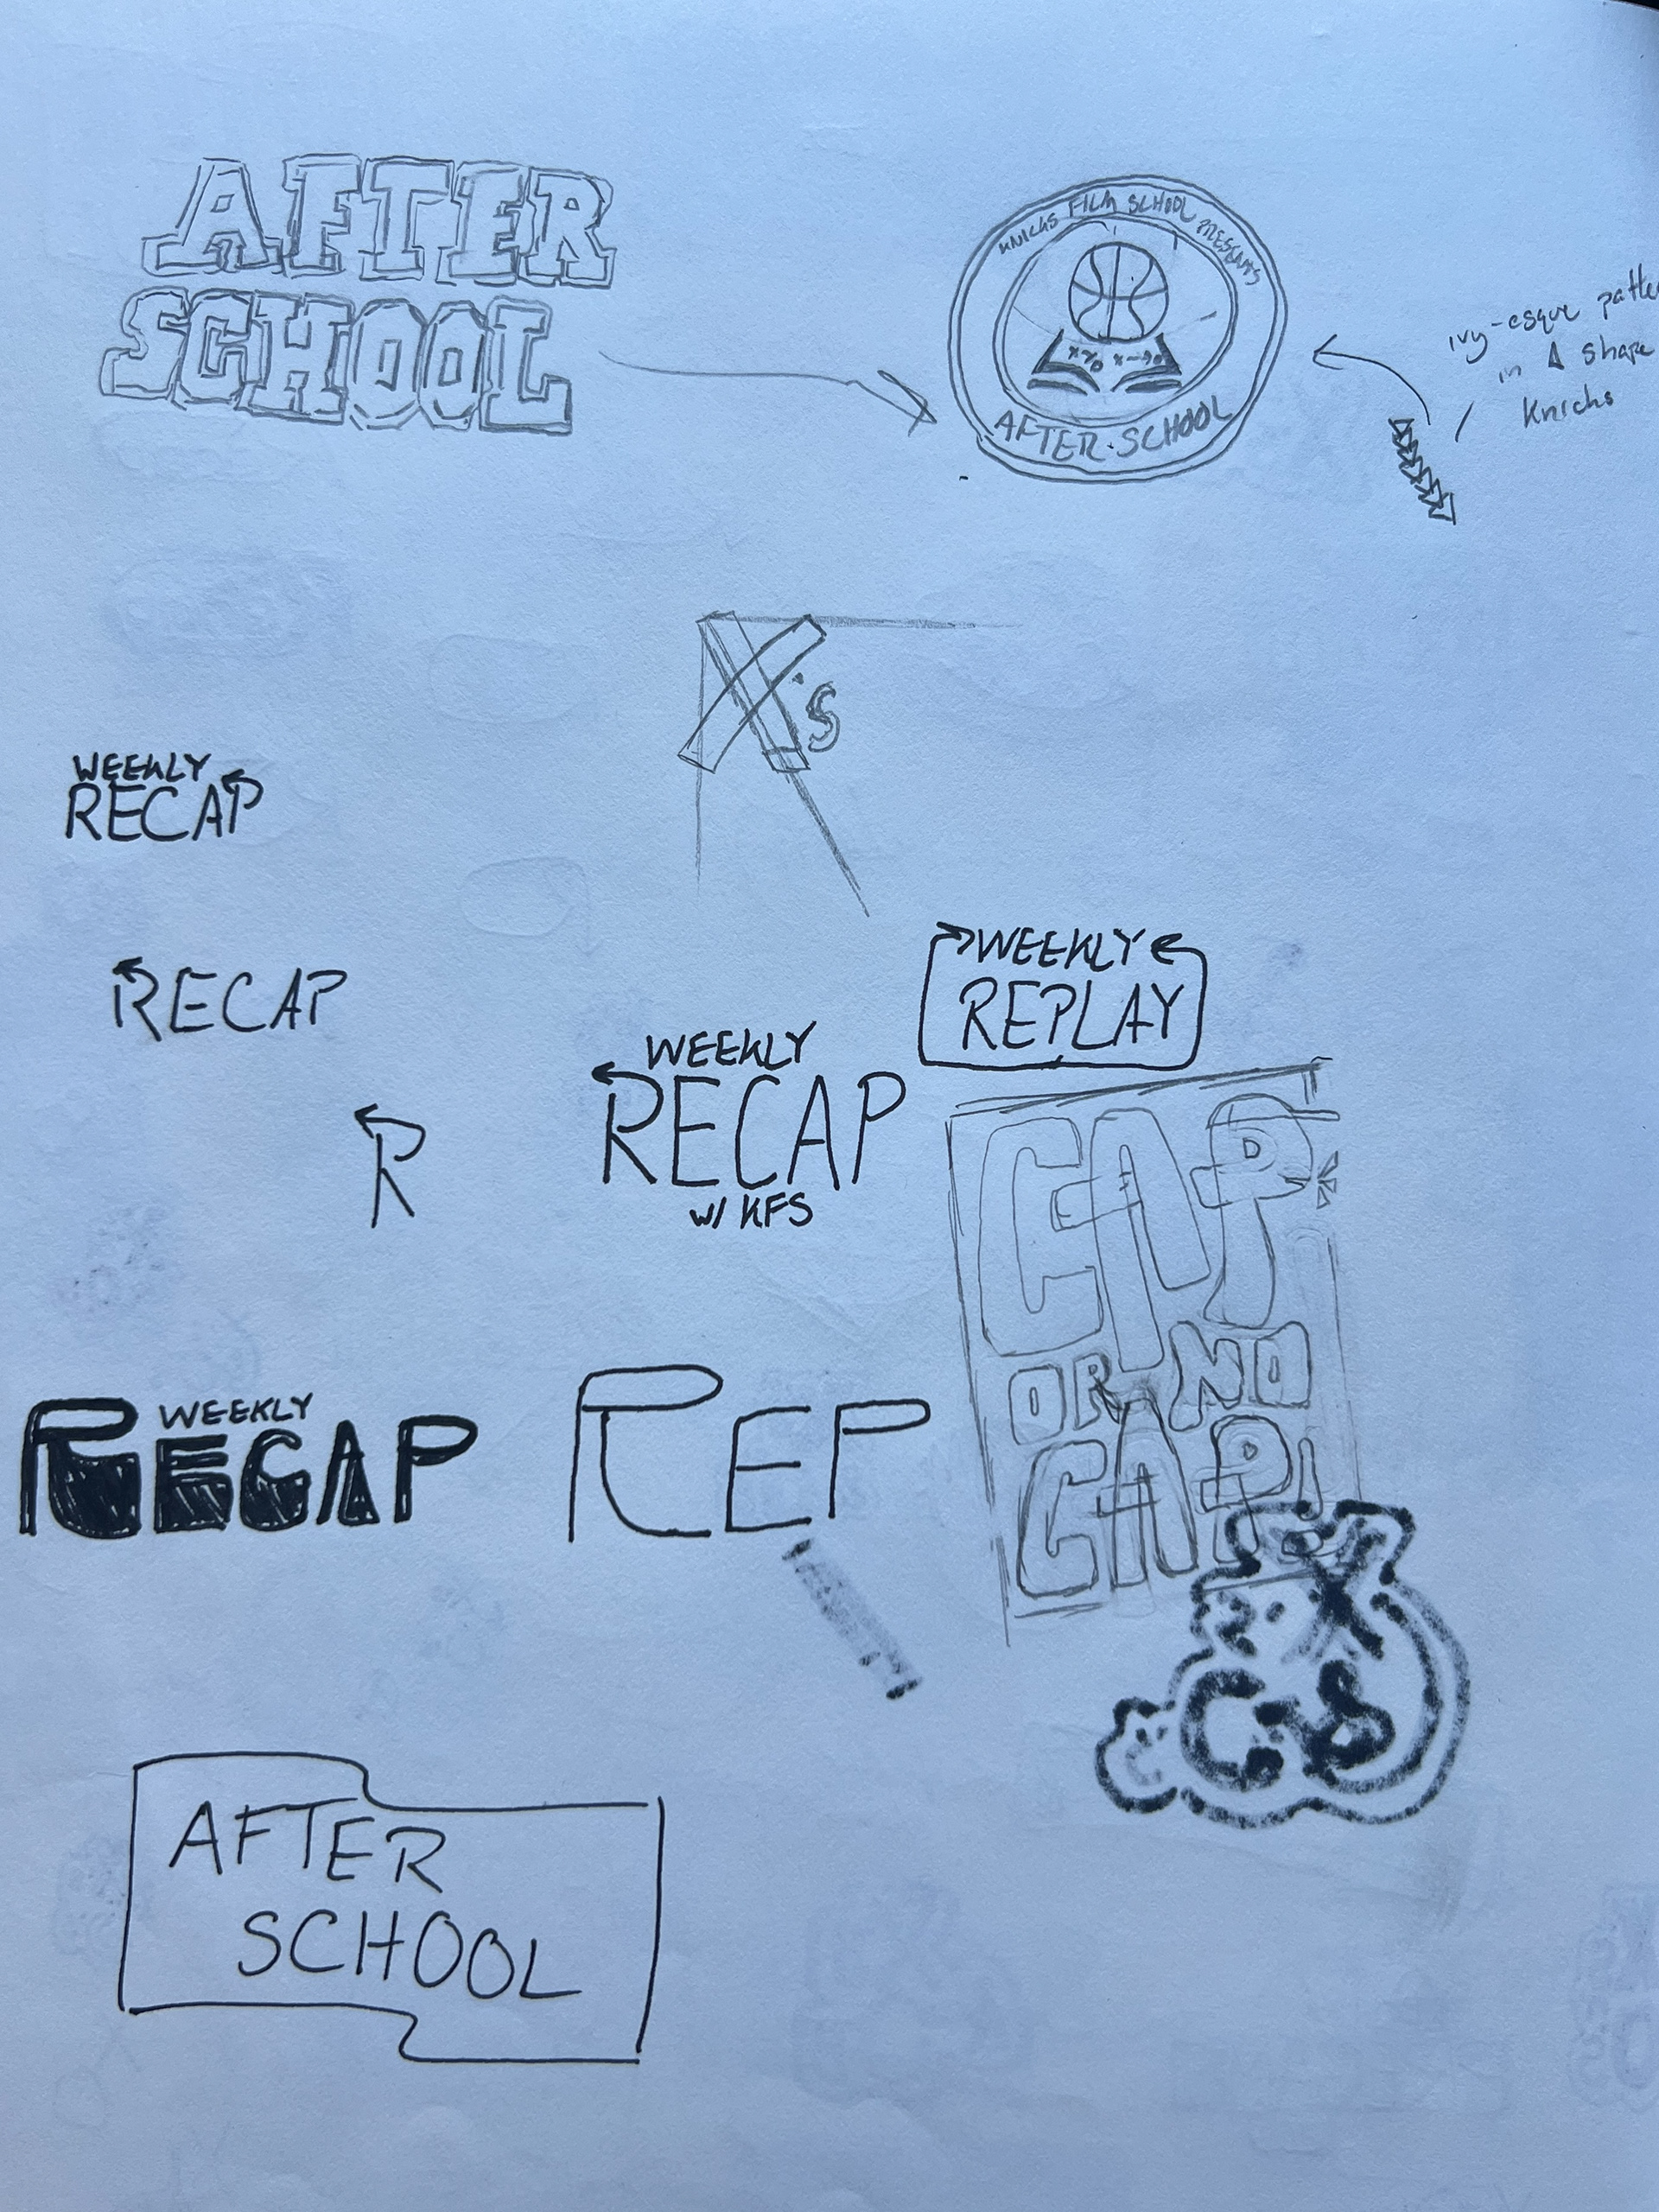 AFTER
SCHOOL
KNICKS FILM SCHOOL PRESENTS
AFTER·SCHOOL
ivy-esque
in Δ shape
Knicks
X'S
WEEKLY
RECAP
RECAP
R
WEEKLY
RECAP
w/ KFS
WEEKLY
REPLAY
CAP
OR NO
CAP!
WEEKLY
RECAP
REP
AFTER
SCHOOL